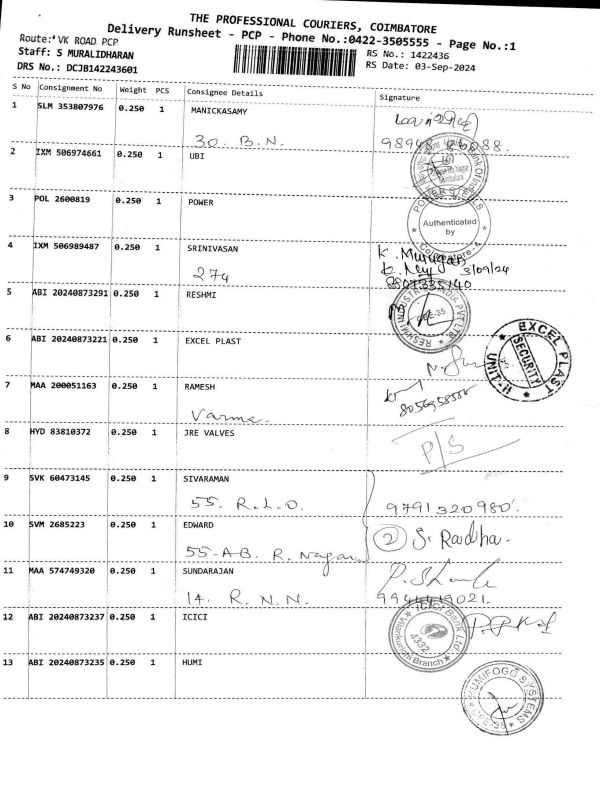 THE PROFESSIONAL COURIERS, COIMBATORE
Delivery Runsheet - PCP - Phone No.:0422-3505555 - Page No.:1
Route: VK ROAD PCP
RS No.: 1422436
Staff: S MURALIDHARAN
RS Date: 03-Sep-2024
DRS No.: DCJB142243601
S No Consignment No Weight PCS Consignee Details Signature
1 SLM 353807976 0.250 1 MANICKASAMY
30. B.N.
2 IXM 506974661 0.250 1 UBI
3 POL 2600819 0.250 1 POWER
Authenticated
by
4 IXM 506989487 0.250 1 SRINIVASAN
K. Murugan
274
3/09/24
5 ABI 20240873291 0.250 1 RESHMI
6 ABI 20240873221 0.250 1 EXCEL PLAST
EXCEL PLAST
SECURITY
UNIT-II
7 MAA 200051163 0.250 1 RAMESH
Varma.
8 HYD 83810372 0.250 1 JRE VALVES
P/S
9 SVK 60473145 0.250 1 SIVARAMAN
55. R.L.O. 9791320980.
10 SVM 2685223 0.250 1 EDWARD
2 S. Raidha.
55-AB. R. Nagar
11 MAA 574749320 0.250 1 SUNDARAJAN
14. R. N. N. 9944419021.
12 ABI 20240873237 0.250 1 ICICI
ICICI Bank Ltd.
4332
Vilankurichi Branch
13 ABI 20240873235 0.250 1 HUMI
HUMIFOGG SYSTEMS